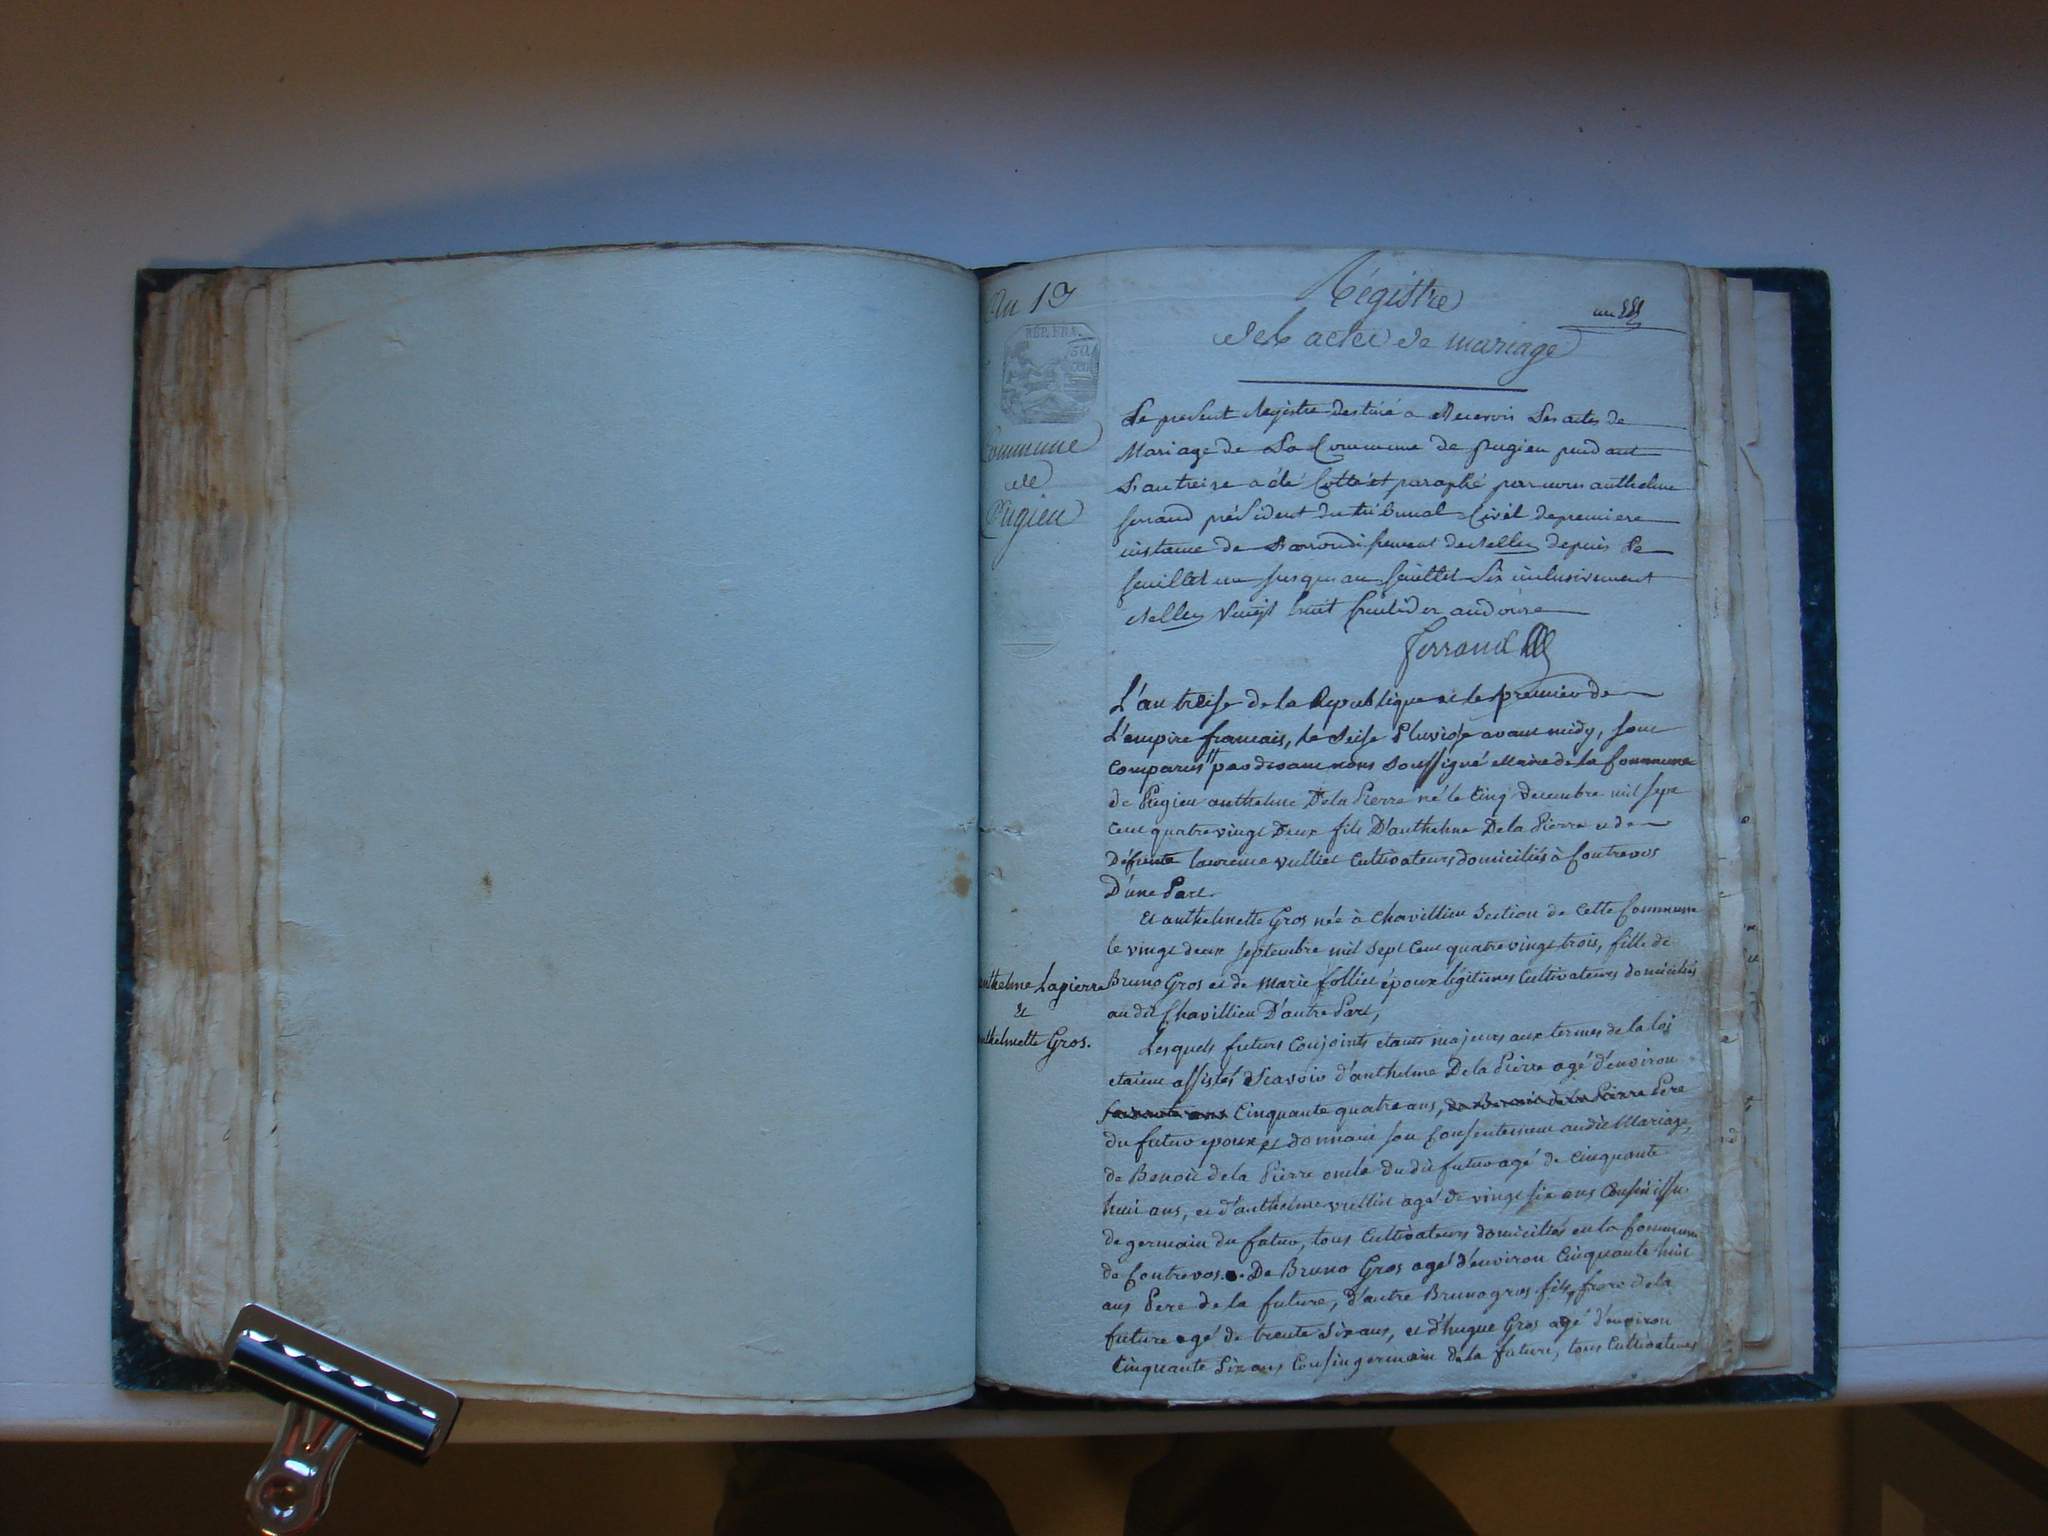 An 13
REP. FRA.
50
Commune
de
Pugieu
Régistre
des actes de mariage
un
Le present Registre destiné a Recevoir Les actes de
Mariage de La Commune de Pugieu pendant
L'an treize a été Cotté et paraphé par nous anthelme
ferrand président du tribunal Civil de premiere
instance de L'arrondissement de Belley depuis Le
feuillet un jusques au feuillet Six inclusivement
Belley vingt huit fructidor an douze
Ferrand
L'an treise de la Republique et le premier de
L'empire francais, le Seise Pluviose avant midy, sont
comparus pardevant nous soussigné Maire de la Commune
de Pugieu anthelme Dela Pierre né le Cinq decembre mil sept
cent quatre vingt Deux fils D'anthelme Dela Pierre et de
Défunte laurence vulliet Cultivateurs domiciliés à Contrevos
D'une Part.
Et anthelmette Gros née à Chavillieu Section de Cette Commune
le vingt deux Septembre mil sept Cent quatre vingt trois, fille de
Bruno Gros et de Marie folliet époux légitimes Cultivateurs domiciliés
au dit Chavillieu D'autre Part,
anthelme Lapierre
&
anthelmette Gros.
Lesquels futurs Conjoints etants majeurs aux termes de la loi
etaient assistés Scavoir d'anthelme Dela Pierre agé d'environ
Cinquante quatre ans, Pere
du futur epoux et donnant son Consentement audit Mariage,
de Benoit dela Pierre oncle du dit futur agé de Cinquante
huit ans, et d'anthelme vulliet agé de vingt six ans Cousin issu
de germain du futur, tous Cultivateurs domiciliés en la Commune
de Contrevos. De Bruno Gros agé d'environ Cinquante huit
ans Pere de la future, d'autre Bruno gros fils, frere de la
future agé de trente Six ans, et d'hugue Gros agé d'environ
Cinquante Six ans Cousin germain de la future, tous Cultivateurs